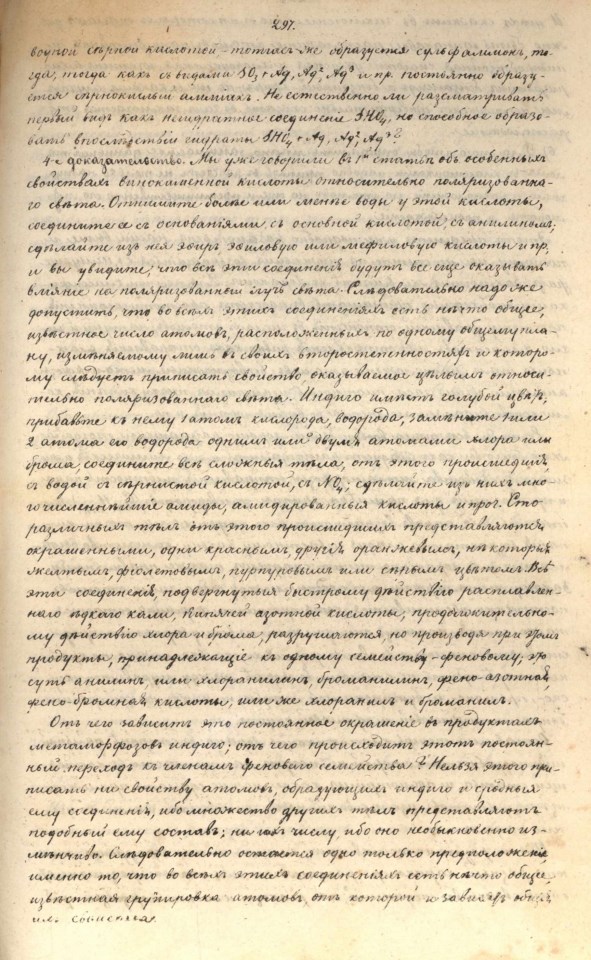 297.
водной сѣрной кислотой – тотчасъ-же образуется сульфалимонъ, то-
гда, тогда какъ съ видами SO₃ + Ag, Ag², Ag³ и пр. постоянно образу-
ется сѣрнокислый амміакъ. Не естественно ли разсматривать
первый видъ какъ негидратное соединеніе SHO₄, но способное образо-
вать впослѣдствіи гидраты SHO₄ + Ag, Ag², Ag³?
4-е доказательство. Мы уже говорили въ 1й статьѣ объ особенныхъ
свойствахъ виннокаменной кислоты относительно поляризованна-
го свѣта. Отнимите болѣе или менѣе воды у этой кислоты,
соедините ее съ основаніями, съ основной кислотой, съ анилиномъ;
сдѣлайте изъ нея эфиръ эѳиловую или меѳиловую кислоты и пр.
и вы увидите, что всѣ эти соединенія будутъ все еще оказывать
вліяніе на поляризованный лучъ свѣта. Слѣдовательно надо же
допустить, что во всѣхъ этихъ соединеніяхъ есть нѣчто общее,
извѣстное число атомовъ, расположенныхъ по одному общему пла-
ну, измѣняемому лишь въ своихъ второстепенностяхъ и которо-
му слѣдуетъ приписать свойство, оказываемое цѣлымъ относи-
тельно поляризованнаго свѣта. Индиго имѣетъ голубой цвѣтъ;
прибавьте къ нему 1 атомъ кислорода, водорода, замѣните 1 или
2 атома его водорода однимъ или двумя атомами хлора или
брома, соедините всѣ сложныя тѣла, отъ этого происшедшія,
съ водой съ сѣрнистой кислотой, съ NO₄; сдѣлайте изъ нихъ мно-
гочисленнѣйшіе амиды, амидированныя кислоты и проч. Сто
различныхъ тѣлъ отъ этого происшедшихъ представляются
окрашенными, одни краснымъ, другія оранжевымъ, нѣкоторыя
желтымъ, фіолетовымъ, пурпуровымъ или синимъ цвѣтомъ. Всѣ
эти соединенія, подвергнутыя быстрому дѣйствію расплавлен-
наго ѣдкаго кали, кипячей азотной кислоты, продолжительно-
му дѣйствію хлора и брома, разрушаются, но производя при этомъ
продукты, принадлежащіе къ одному семейству – феновому, это
суть анилинъ, или хлоранилинъ, броманилинъ, фено-азотная,
фено-бромная кислоты, или же хлоранилъ и броманилъ.
Отъ чего зависитъ это постоянное окрашеніе въ продуктахъ
метаморфозовъ индиго; отъ чего происходитъ этотъ постоян-
ный переходъ къ членамъ феноваго семейства? Нельзя этого при-
писать ни свойству атомовъ, образующихъ индиго и сродныя
ему соединенія, ибо множество другихъ тѣлъ представляютъ
подобный ему составъ; ни ихъ числу, ибо оно необыкновенно из-
мѣнчиво. Слѣдовательно остается одно только предположеніе
именно то, что во всѣхъ этихъ соединеніяхъ есть нѣчто общее,
извѣстная групировка атомовъ, отъ которой и зависятъ общія
ихъ свойства.